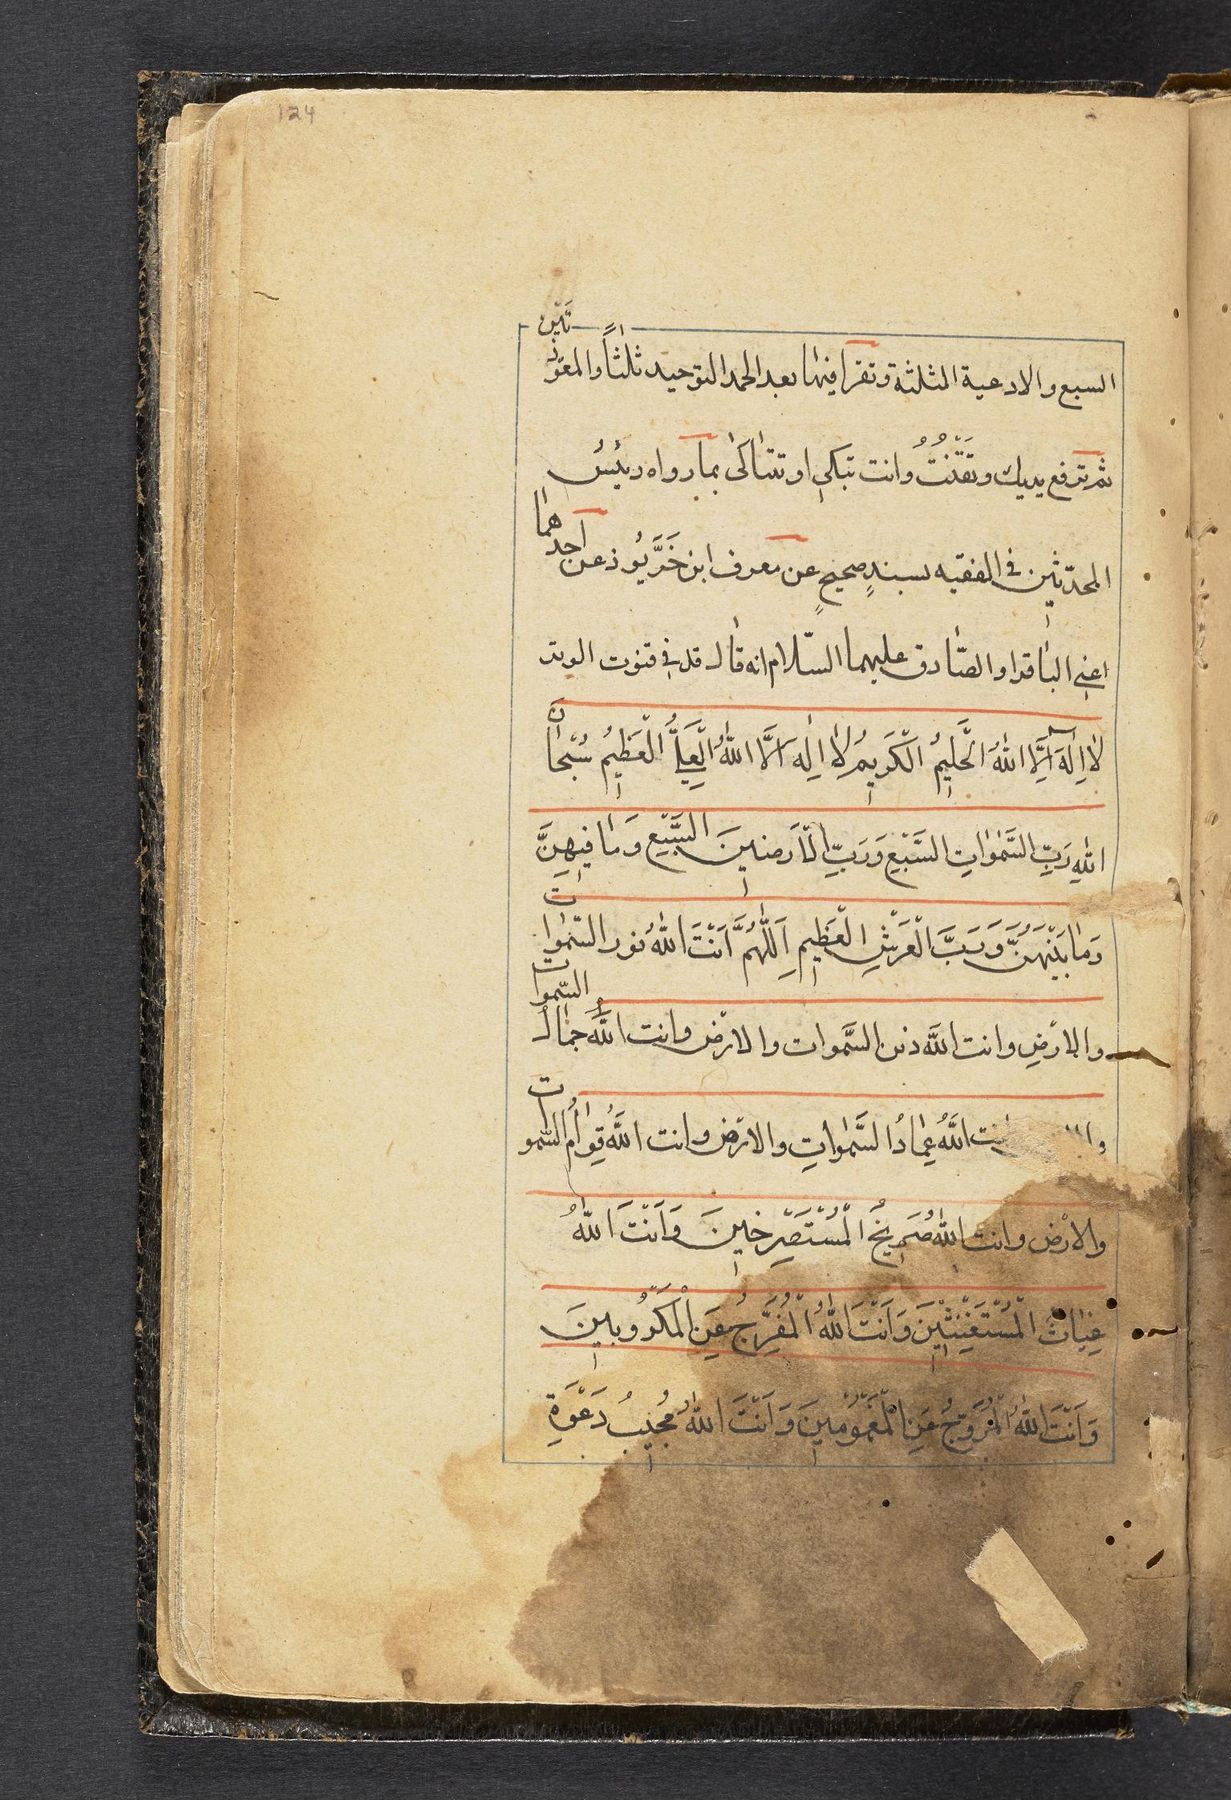 124
السبع والادعية الثلثة وتقرا فيها بعد الحمد التوحيد ثلثاً والمعوّذتين
ثم ترفع يديك وتَقْنُتُ وانت تبكي او تتباكى بما رواه رئيسُ
المحدّثين في الفقيه بسندٍ صحيحٍ عن معروف ابن خَرَّبُوذ عن احدهما
اعني الباقر او الصّادق عليهما السّلام انه قال قل في قنوت الوتر
لا اِلٰهَ اِلَّا اللّٰهُ الْحَلِيمُ الْكَرِيمُ لا اِلٰهَ اِلَّا اللّٰهُ الْعَلِيُّ الْعَظِيمُ سُبْحَانَ
اللّٰهِ رَبِّ السَّمٰوَاتِ السَّبْعِ وَرَبِّ الْاَرَضِينَ السَّبْعِ وَمَا فِيهِنَّ
وَمَا بَيْنَهُنَّ وَرَبِّ الْعَرْشِ الْعَظِيمِ اَللّٰهُمَّ اَنْتَ اللّٰهُ نور السّمٰوات
والارْضِ وانت اللّٰه زين السَّموات والارْض وانت اللّٰهُ جمالُ السّموات
وانت اللّٰهُ عِمَادُ السَّمٰوَاتِ والارْض وانت اللّٰهُ قِوَامُ السّموات
والارْض وانت اللّٰهُ صَرِيخُ الْمُسْتَصْرِخِينَ وَاَنْتَ اللّٰهُ
غِيَاثُ الْمُسْتَغِيثِينَ وَاَنْتَ اللّٰهُ الْمُفَرِّجُ عَنِ الْمَكْرُوبِينَ
وَاَنْتَ اللّٰهُ الْمُرَوِّحُ عَنِ الْمَغْمُومِينَ وَاَنْتَ اللّٰهُ مُجِيبُ دَعْوَةِ